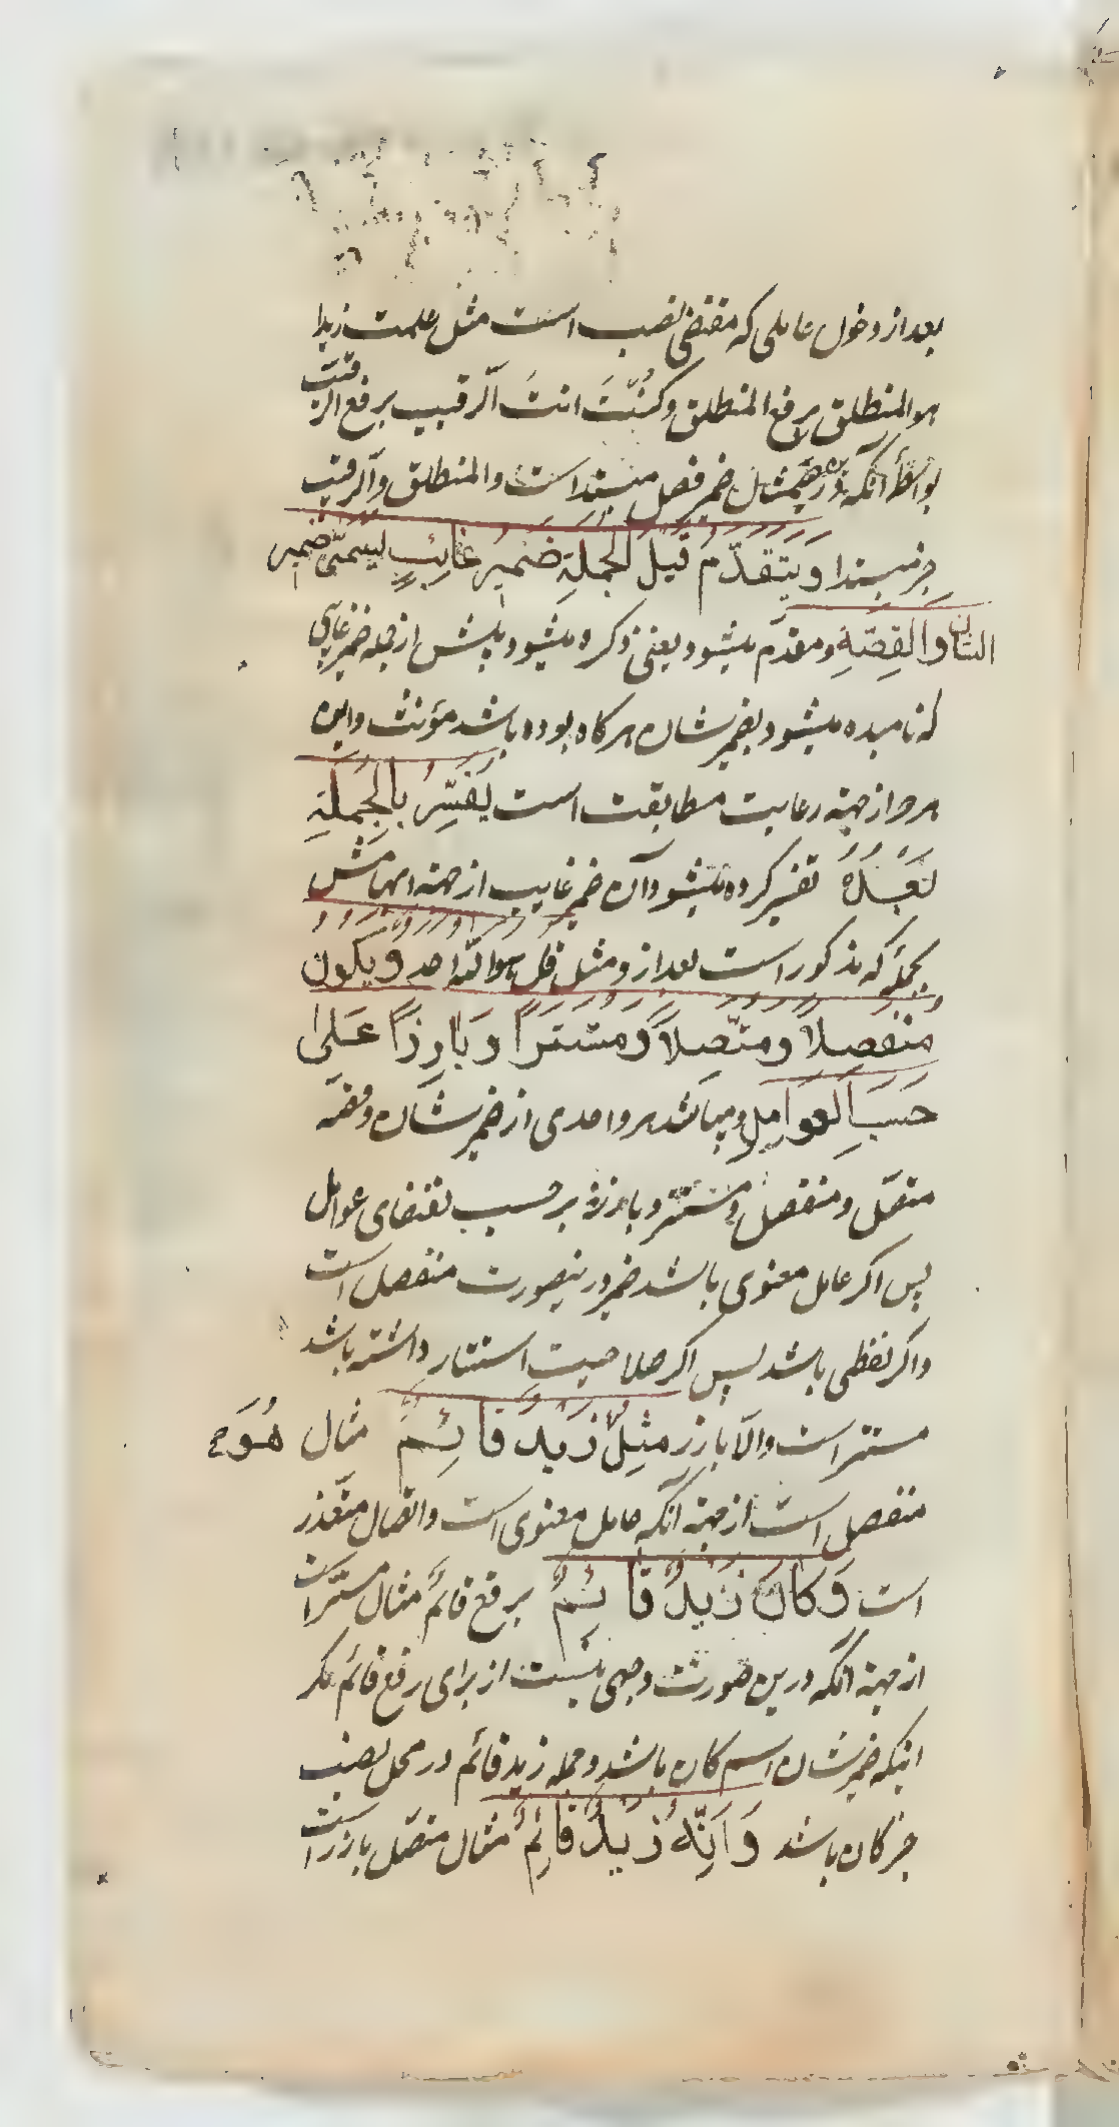 بعد از دخول عاملی که مقتضی نصب است مثل علمت زیدا
هو المنطلق برفع المنطلق و کُنْتَ انتَ الرقیب برفع الرقیب
بواسطهٔ آنکه درین مثال ضمیر فصل مبتدا است والمنطلق والرقیب
خبر مبتدا وَیَتَقَدّمُ قَبْلَ الجُمْلَةِ ضَمِیرُ غائِبٍ یُسَمّیٰ ضَمِیرَ
الشَّانِ وَالقِصَّةِ و مقدّم میشود یعنی ذکر میشود پیش از جمله ضمیر غایبی
که نامیده میشود بضمیر شان هرگاه بوده باشد مؤنث و این
هر دو از جهة رعایت مطابقت است یُفَسَّرُ بِالجُمْلَةِ
بَعْدَهُ تفسیر کرده میشود آن ضمیر غایب از جهة ابهامش
بجملهٔ که مذکور است بعد از و مثل قل هو الله احد وَیَکُونُ
مُنْفَصِلاً وَمتَّصِلاً وَمُسْتَتِراً وَبَارِزاً عَلیٰ
حَسَبِ العَوامِلِ و میباشد هر واحدی از ضمیر شان و قصّه
متصل و منفصل و مستتر و بارز بر حسب تقتضای عوامل
پس اگر عامل معنوی باشد ضمیر درینصورت منفصل است
و اگر لفظی باشد پس اگر صلاحیت استتار داشته باشد
مستتر است والّا بارز مِثْلُ زَیْدٌ قَائِمٌ مثال هُوَ
منفصل است از جهة آنکه عامل معنوی است و اتصال متعذر
است وَکَانَ زَیْدٌ قَائِمٌ برفع قائم مثال مستتر است
از جهة آنکه درین صورت وجهی نیست از برای رفع قائم مگر
اینکه ضمیر شان اسم کان باشد و جمله زید قائم در محل نصب
خبر کان باشد وَاِنَّهُ زَیْدٌ قَائِمٌ مثال متصل بارز است